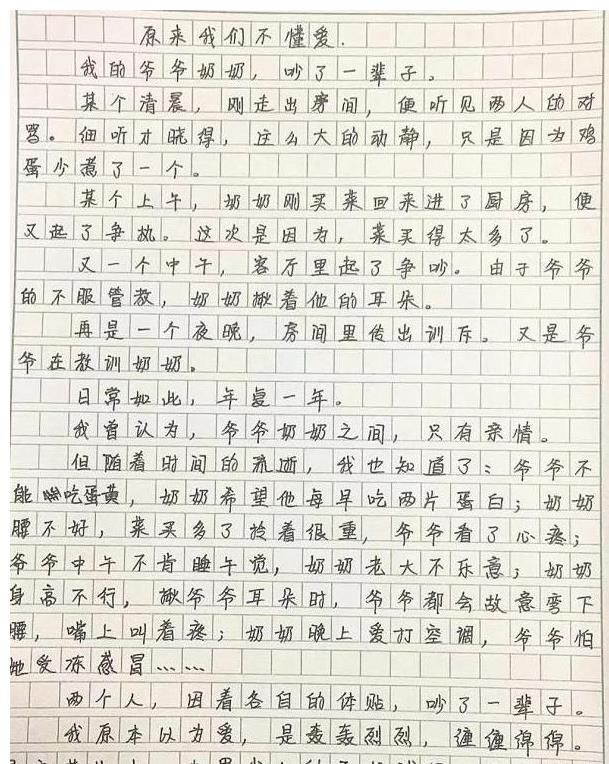 原来我们不懂爱.
我的爷爷奶奶，吵了一辈子。
某个清晨，刚走出房间，便听见两人的对
骂。细听才晓得，这么大的动静，只是因为鸡
蛋少煮了一个。
某个上午，奶奶刚买菜回来进了厨房，便
又起了争执。这次是因为，菜买得太多了。
又一个中午，客厅里起了争吵。由于爷爷
的不服管教，奶奶揪着他的耳朵。
再是一个夜晚，房间里传出训斥。又是爷
爷在教训奶奶。
日常如此，年复一年。
我曾认为，爷爷奶奶之间，只有亲情。
但随着时间的流逝，我也知道了：爷爷不
能吃蛋黄，奶奶希望他每早吃两片蛋白；奶奶
腰不好，菜买多了拎着很重，爷爷看了心疼；
爷爷中午不肯睡午觉，奶奶老大不乐意；奶奶
身高不行，揪爷爷耳朵时，爷爷都会故意弯下
腰，嘴上叫着疼；奶奶晚上爱打空调，爷爷怕
她受冻感冒……
两个人，因着各自的体贴，吵了一辈子。
我原本以为爱，是轰轰烈烈，缠缠绵绵。